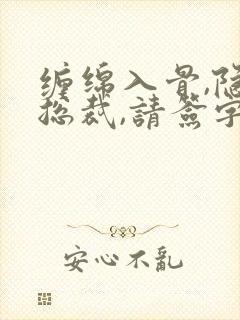 缠绵入骨,隐
总裁,請簽字
安心不亂